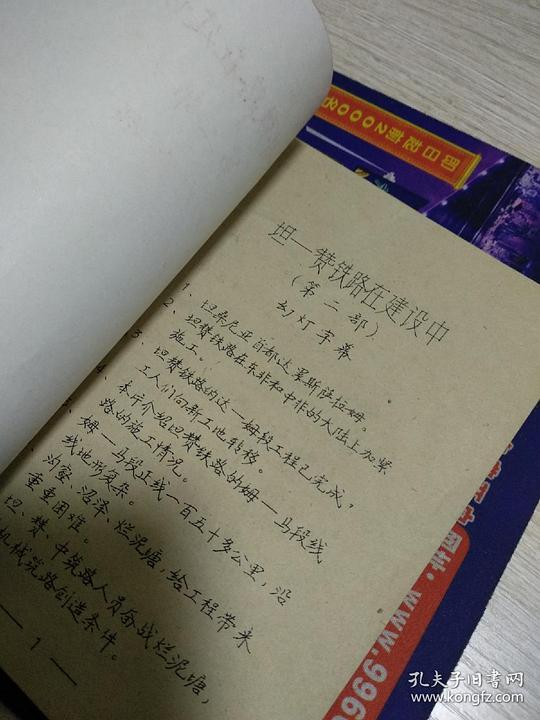 坦—赞铁路在建设中
(第二部)
幻灯字幕
1、坦桑尼亚首都达累斯萨拉姆。
2、坦赞铁路在东非和中非的大陆上加紧
施工。
3、坦赞铁路的达—姆段工程已完成,
工人们向新工地转移。
4、本片介绍坦赞铁路的姆—马段线
路的施工情况。
姆—马段正线一百五十多公里,沿
线地形复杂。
沟壑、沼泽、烂泥塘,给工程带来
重重困难。
坦、赞、中筑路人员奋战烂泥塘,
机械筑路创造条件。
— 1 —
即日起前2000名
网址·www.996
孔夫子旧书网
www.kongfz.com